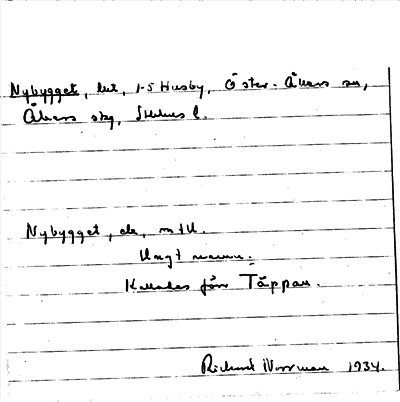 Nybygget, lht, 1-5 Husby, Öster-Åkers sn,
Åkers skg, Sthlms l.
Nybygget, de, m fl.
Ungt namn.
Kallades förr Täppan.
Richard Norrman 1934.